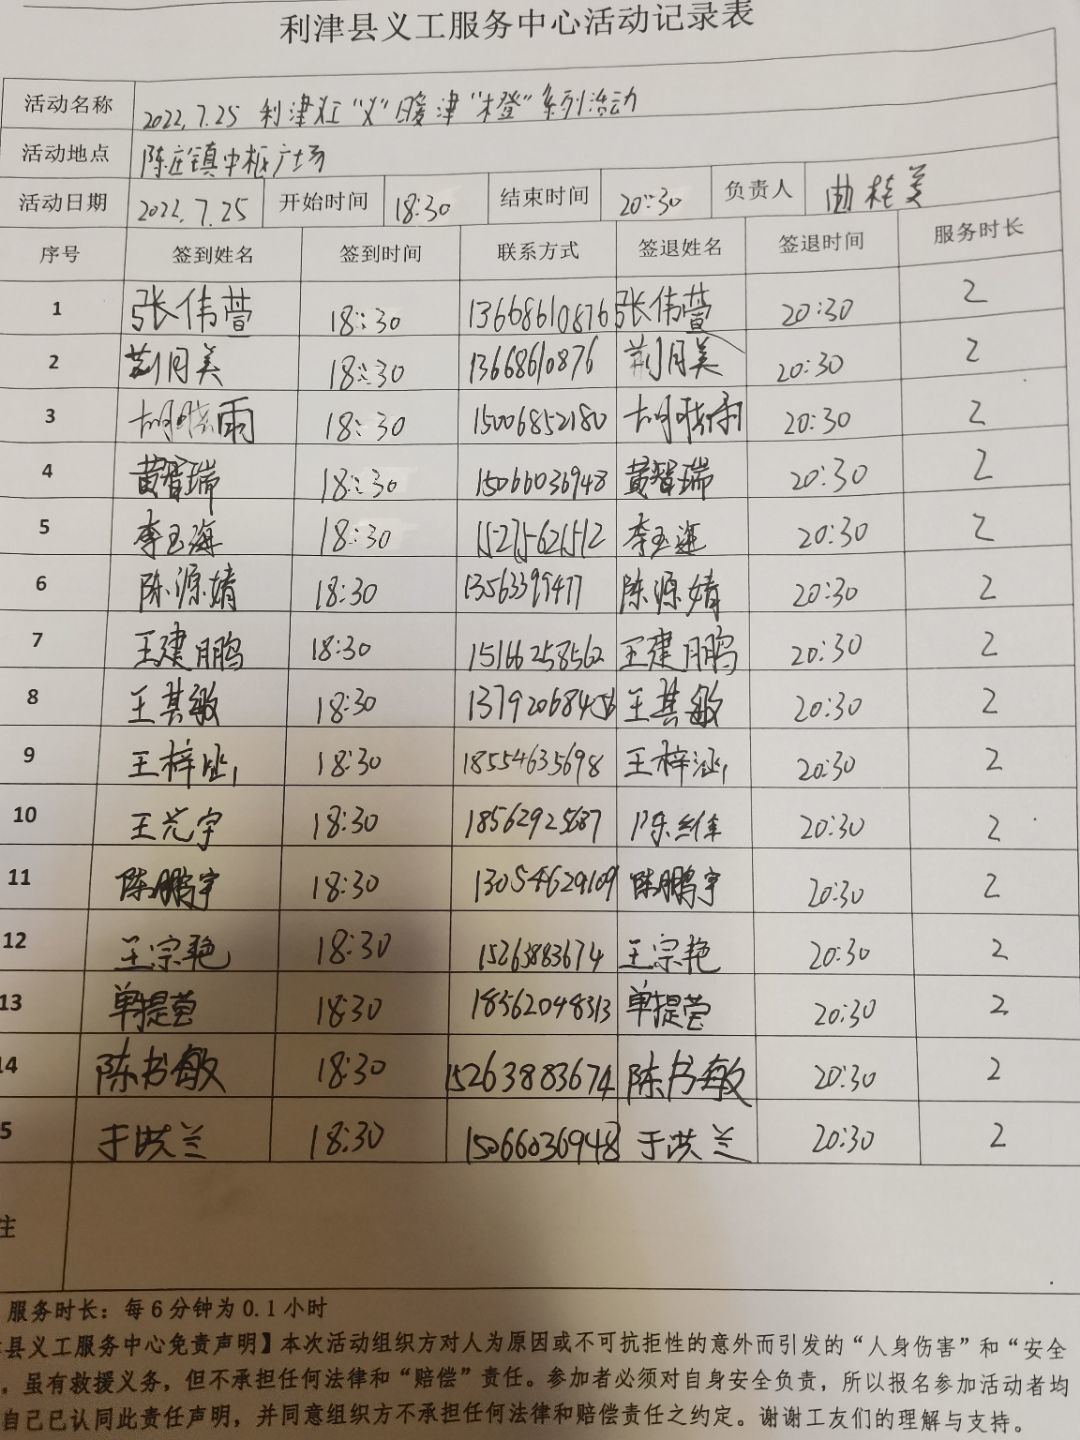 利津县义工服务中心活动记录表
活动名称 2022.7.25 利津义工“义”暖津“橙”系列活动
活动地点 陈庄镇中枢广场
活动日期 2022.7.25 开始时间 18:30 结束时间 20:30 负责人 曲桂美
序号 签到姓名 签到时间 联系方式 签退姓名 签退时间 服务时长
1 张伟萱 18:30 13668610876 张伟萱 20:30 2
2 荆月美 18:30 13668610876 荆月美 20:30 2
3 胡晓雨 18:30 15006852180 胡晓雨 20:30 2
4 黄智瑞 18:30 15066036948 黄智瑞 20:30 2
5 李玉海 18:30 15275621512 李玉海 20:30 2
6 陈源婧 18:30 13563399477 陈源婧 20:30 2
7 王建鹏 18:30 15166258562 王建鹏 20:30 2
8 王其敏 18:30 王其敏 20:30 2
9 王梓涵 18:30 18554635698 王梓涵 20:30 2
10 王光宇 18:30 18562925687 陈维 20:30 2
11 陈鹏宇 18:30 13054629109 陈鹏宇 20:30 2
12 王宗艳 18:30 15263883674 王宗艳 20:30 2
13 单提莹 18:30 18562048313 单提莹 20:30 2
14 陈书敏 18:30 15263883674 陈书敏 20:30 2
5 于洪兰 18:30 15066036948 于洪兰 20:30 2
注
服务时长：每6分钟为0.1小时
县义工服务中心免责声明】本次活动组织方对人为原因或不可抗拒性的意外而引发的“人身伤害”和“安全
，虽有救援义务，但不承担任何法律和“赔偿”责任。参加者必须对自身安全负责，所以报名参加活动者均
自己已认同此责任声明，并同意组织方不承担任何法律和赔偿责任之约定。谢谢工友们的理解与支持。